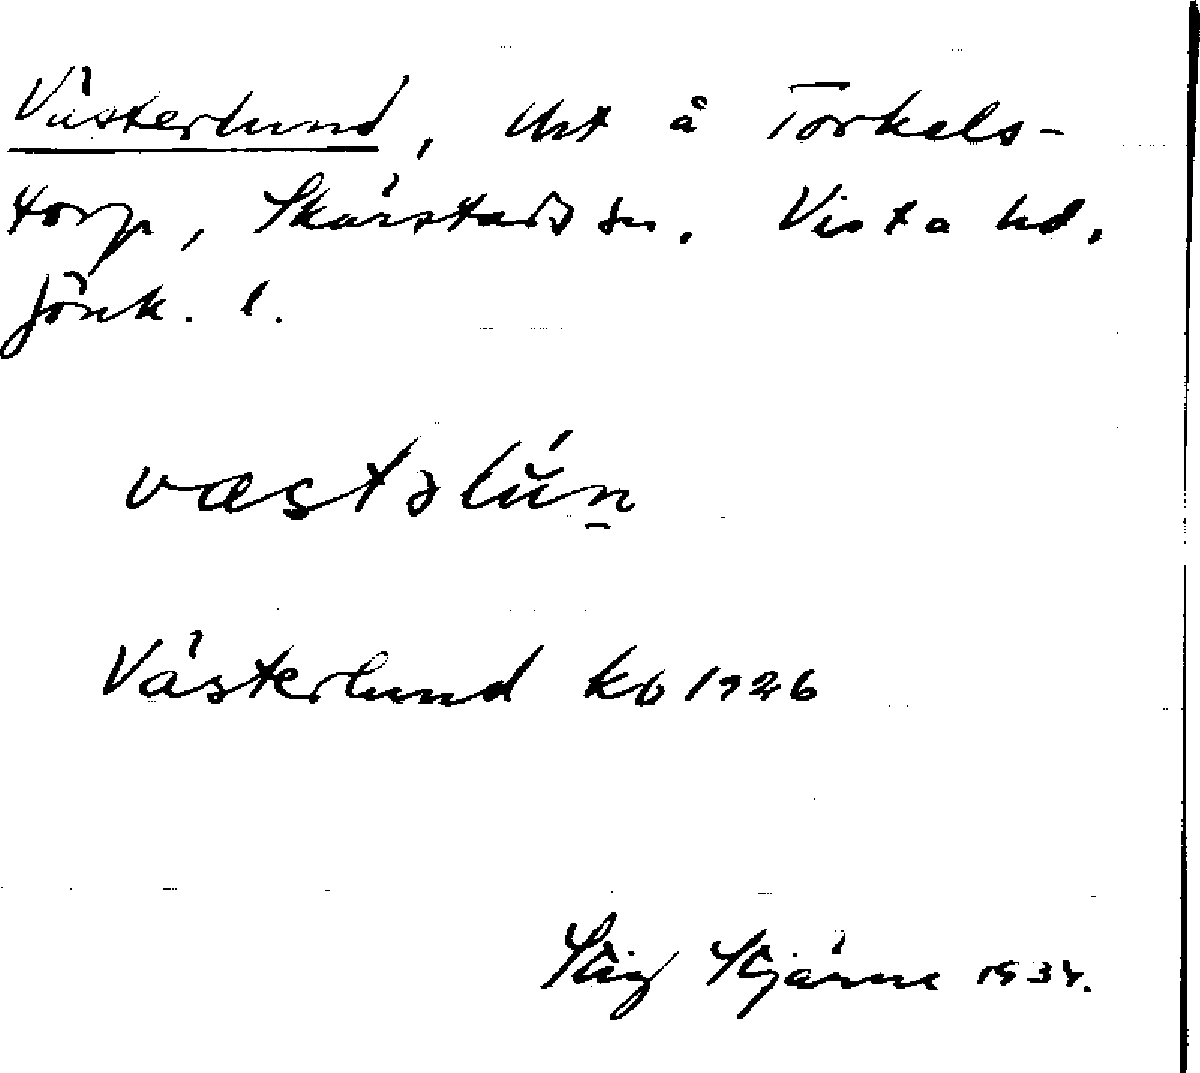 Västerlund, lht å Torkels-
torp, Skärstads sn. Vista hd.
Jönk. l.
væstəlún
Västerlund kb 1926
Stig Stjärne 1934.